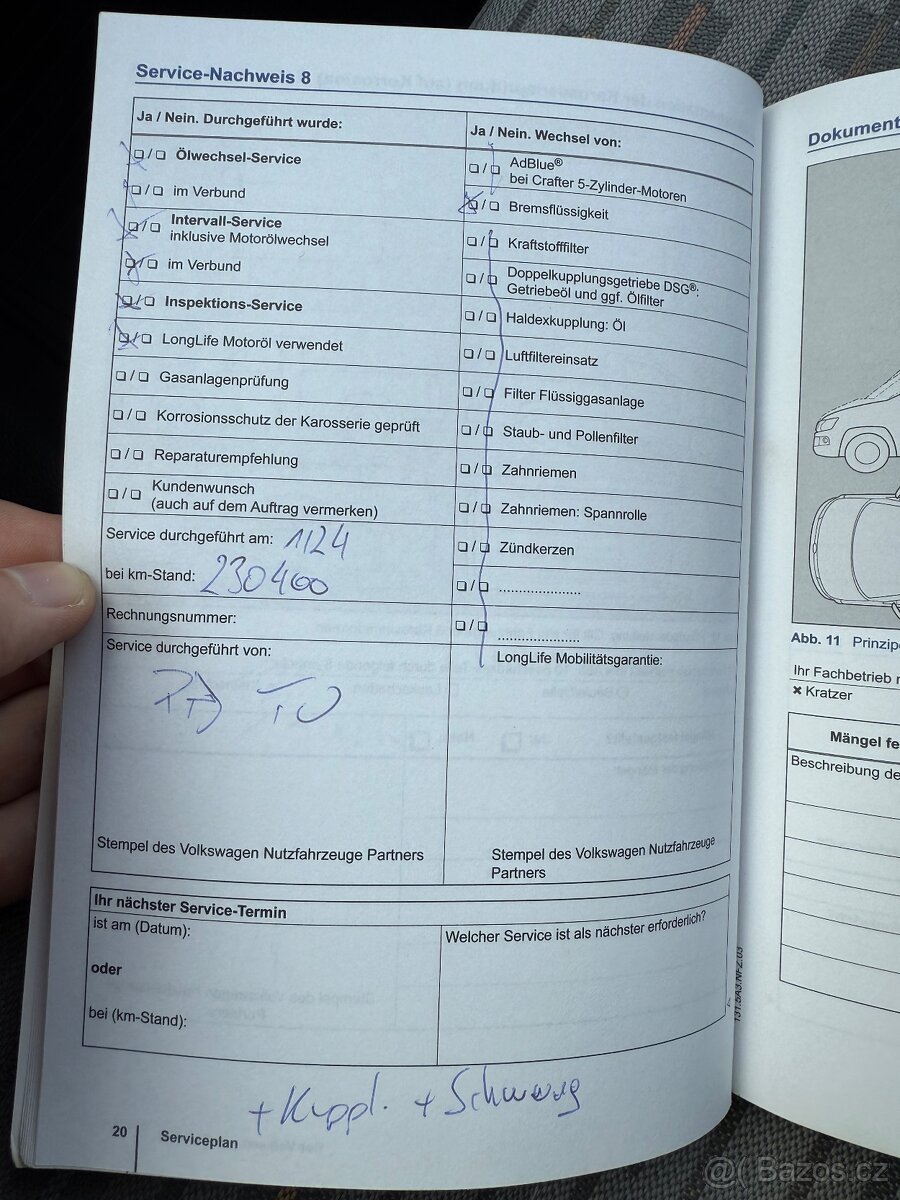 Service-Nachweis 8
Ja / Nein. Durchgeführt wurde:
❑ / ❑ Ölwechsel-Service
❑ / ❑ im Verbund
❑ / ❑ Intervall-Service
inklusive Motorölwechsel
❑ / ❑ im Verbund
❑ / ❑ Inspektions-Service
❑ / ❑ LongLife Motoröl verwendet
❑ / ❑ Gasanlagenprüfung
❑ / ❑ Korrosionsschutz der Karosserie geprüft
❑ / ❑ Reparaturempfehlung
❑ / ❑ Kundenwunsch
(auch auf dem Auftrag vermerken)
Ja / Nein. Wechsel von:
❑ / ❑ AdBlue®
bei Crafter 5-Zylinder-Motoren
❑ / ❑ Bremsflüssigkeit
❑ / ❑ Kraftstofffilter
❑ / ❑ Doppelkupplungsgetriebe DSG®:
Getriebeöl und ggf. Ölfilter
❑ / ❑ Haldexkupplung: Öl
❑ / ❑ Luftfiltereinsatz
❑ / ❑ Filter Flüssiggasanlage
❑ / ❑ Staub- und Pollenfilter
❑ / ❑ Zahnriemen
❑ / ❑ Zahnriemen: Spannrolle
❑ / ❑ Zündkerzen
❑ / ❑ .....................
❑ / ❑ .....................
Service durchgeführt am: 1/24
bei km-Stand: 230400
Rechnungsnummer:
Service durchgeführt von:
Stempel des Volkswagen Nutzfahrzeuge Partners
LongLife Mobilitätsgarantie:
Stempel des Volkswagen Nutzfahrzeuge
Partners
Ihr nächster Service-Termin
ist am (Datum):
oder
bei (km-Stand):
Welcher Service ist als nächster erforderlich?
+ Kuppl. + Schwung
20 Serviceplan
131.5A3.NFZ.03
Dokument
Abb. 11 Prinzip
Ihr Fachbetrieb
✖ Kratzer
Mängel fe
Beschreibung de
@( Bazos.cz